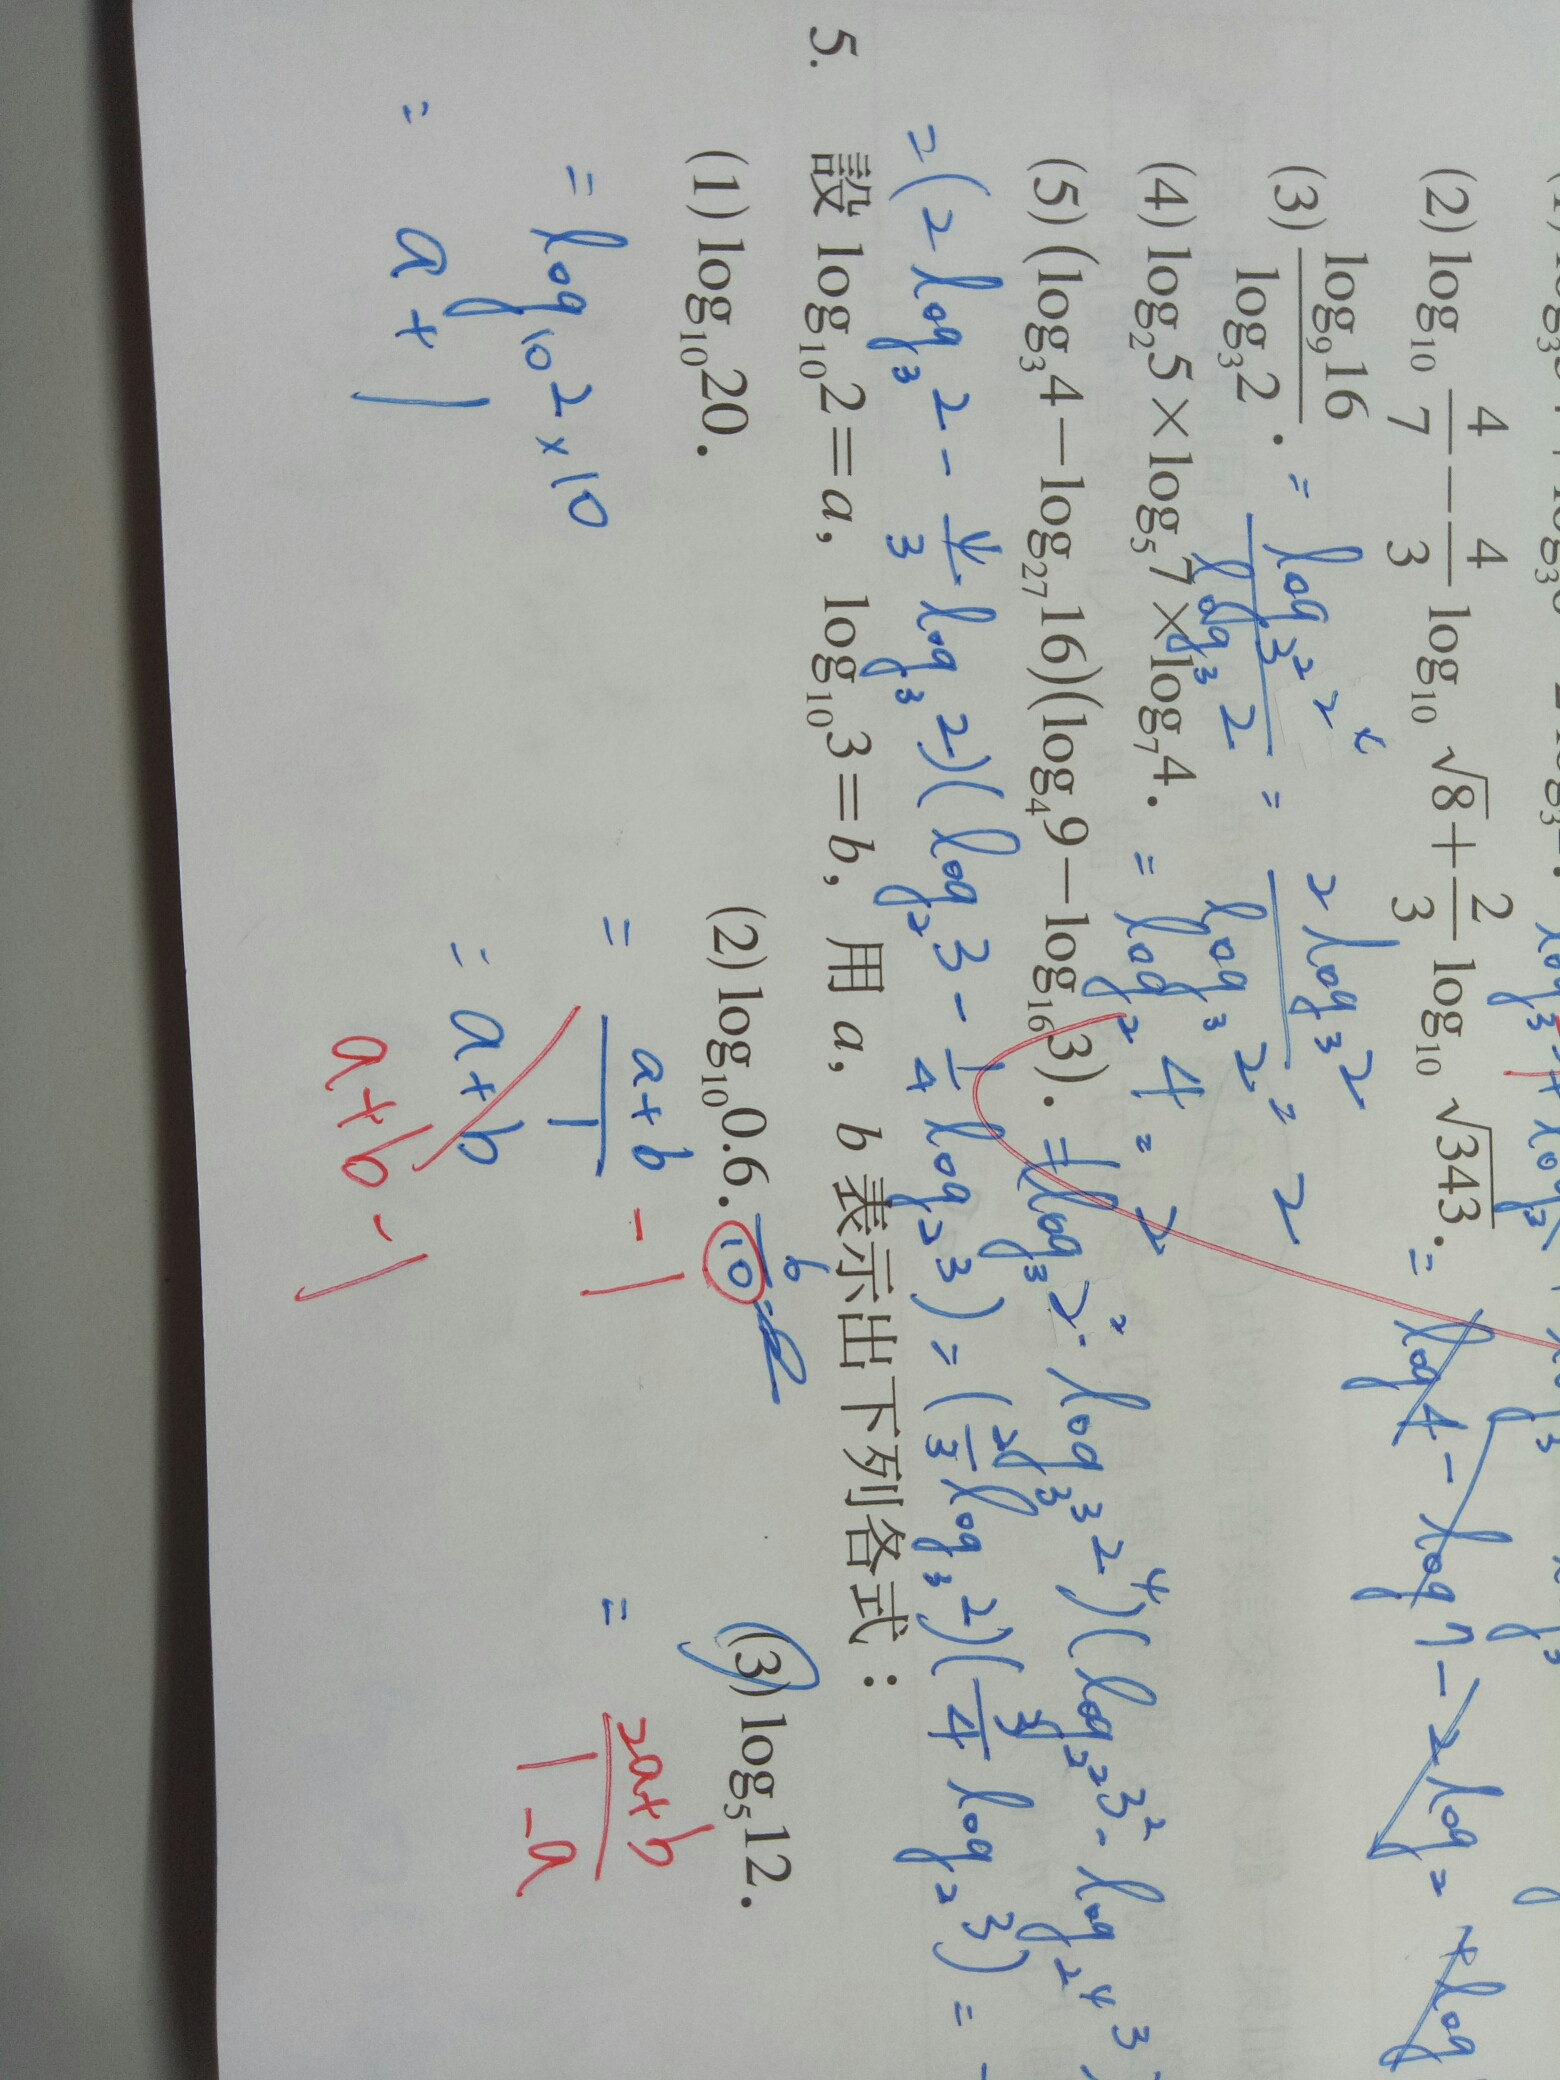 (2) log₁₀ 4/7 − 4/3 log₁₀ √8 + 2/3 log₁₀ √343. = log 4 − log 7 − 2 log 2
(3) log₉16 / log₃2. = log₃² 2⁴ / log₃ 2 = 2 log₃ 2 / log₃ 2 = 2
(4) log₂5 × log₅7 × log₇4. = log₂ 4 = 2
(5) (log₃4 − log₂₇16)(log₄9 − log₁₆3). = (log₃ 2² − log₃³ 2⁴)(log₂² 3² − log₂⁴ 3)
= (2 log₃ 2 − 4/3 log₃ 2)(log₂ 3 − 1/4 log₂ 3) = (2/3 log₃ 2)(3/4 log₂ 3) =
5. 設 log₁₀2 = a, log₁₀3 = b, 用 a, b 表示出下列各式：
(1) log₁₀20. (2) log₁₀0.6. 6/10 (3) log₅12.
= log₁₀ 2 × 10 = a+b / 1 − 1 = 2a+b / 1 − a
= a + 1 = a+b
a+b − 1